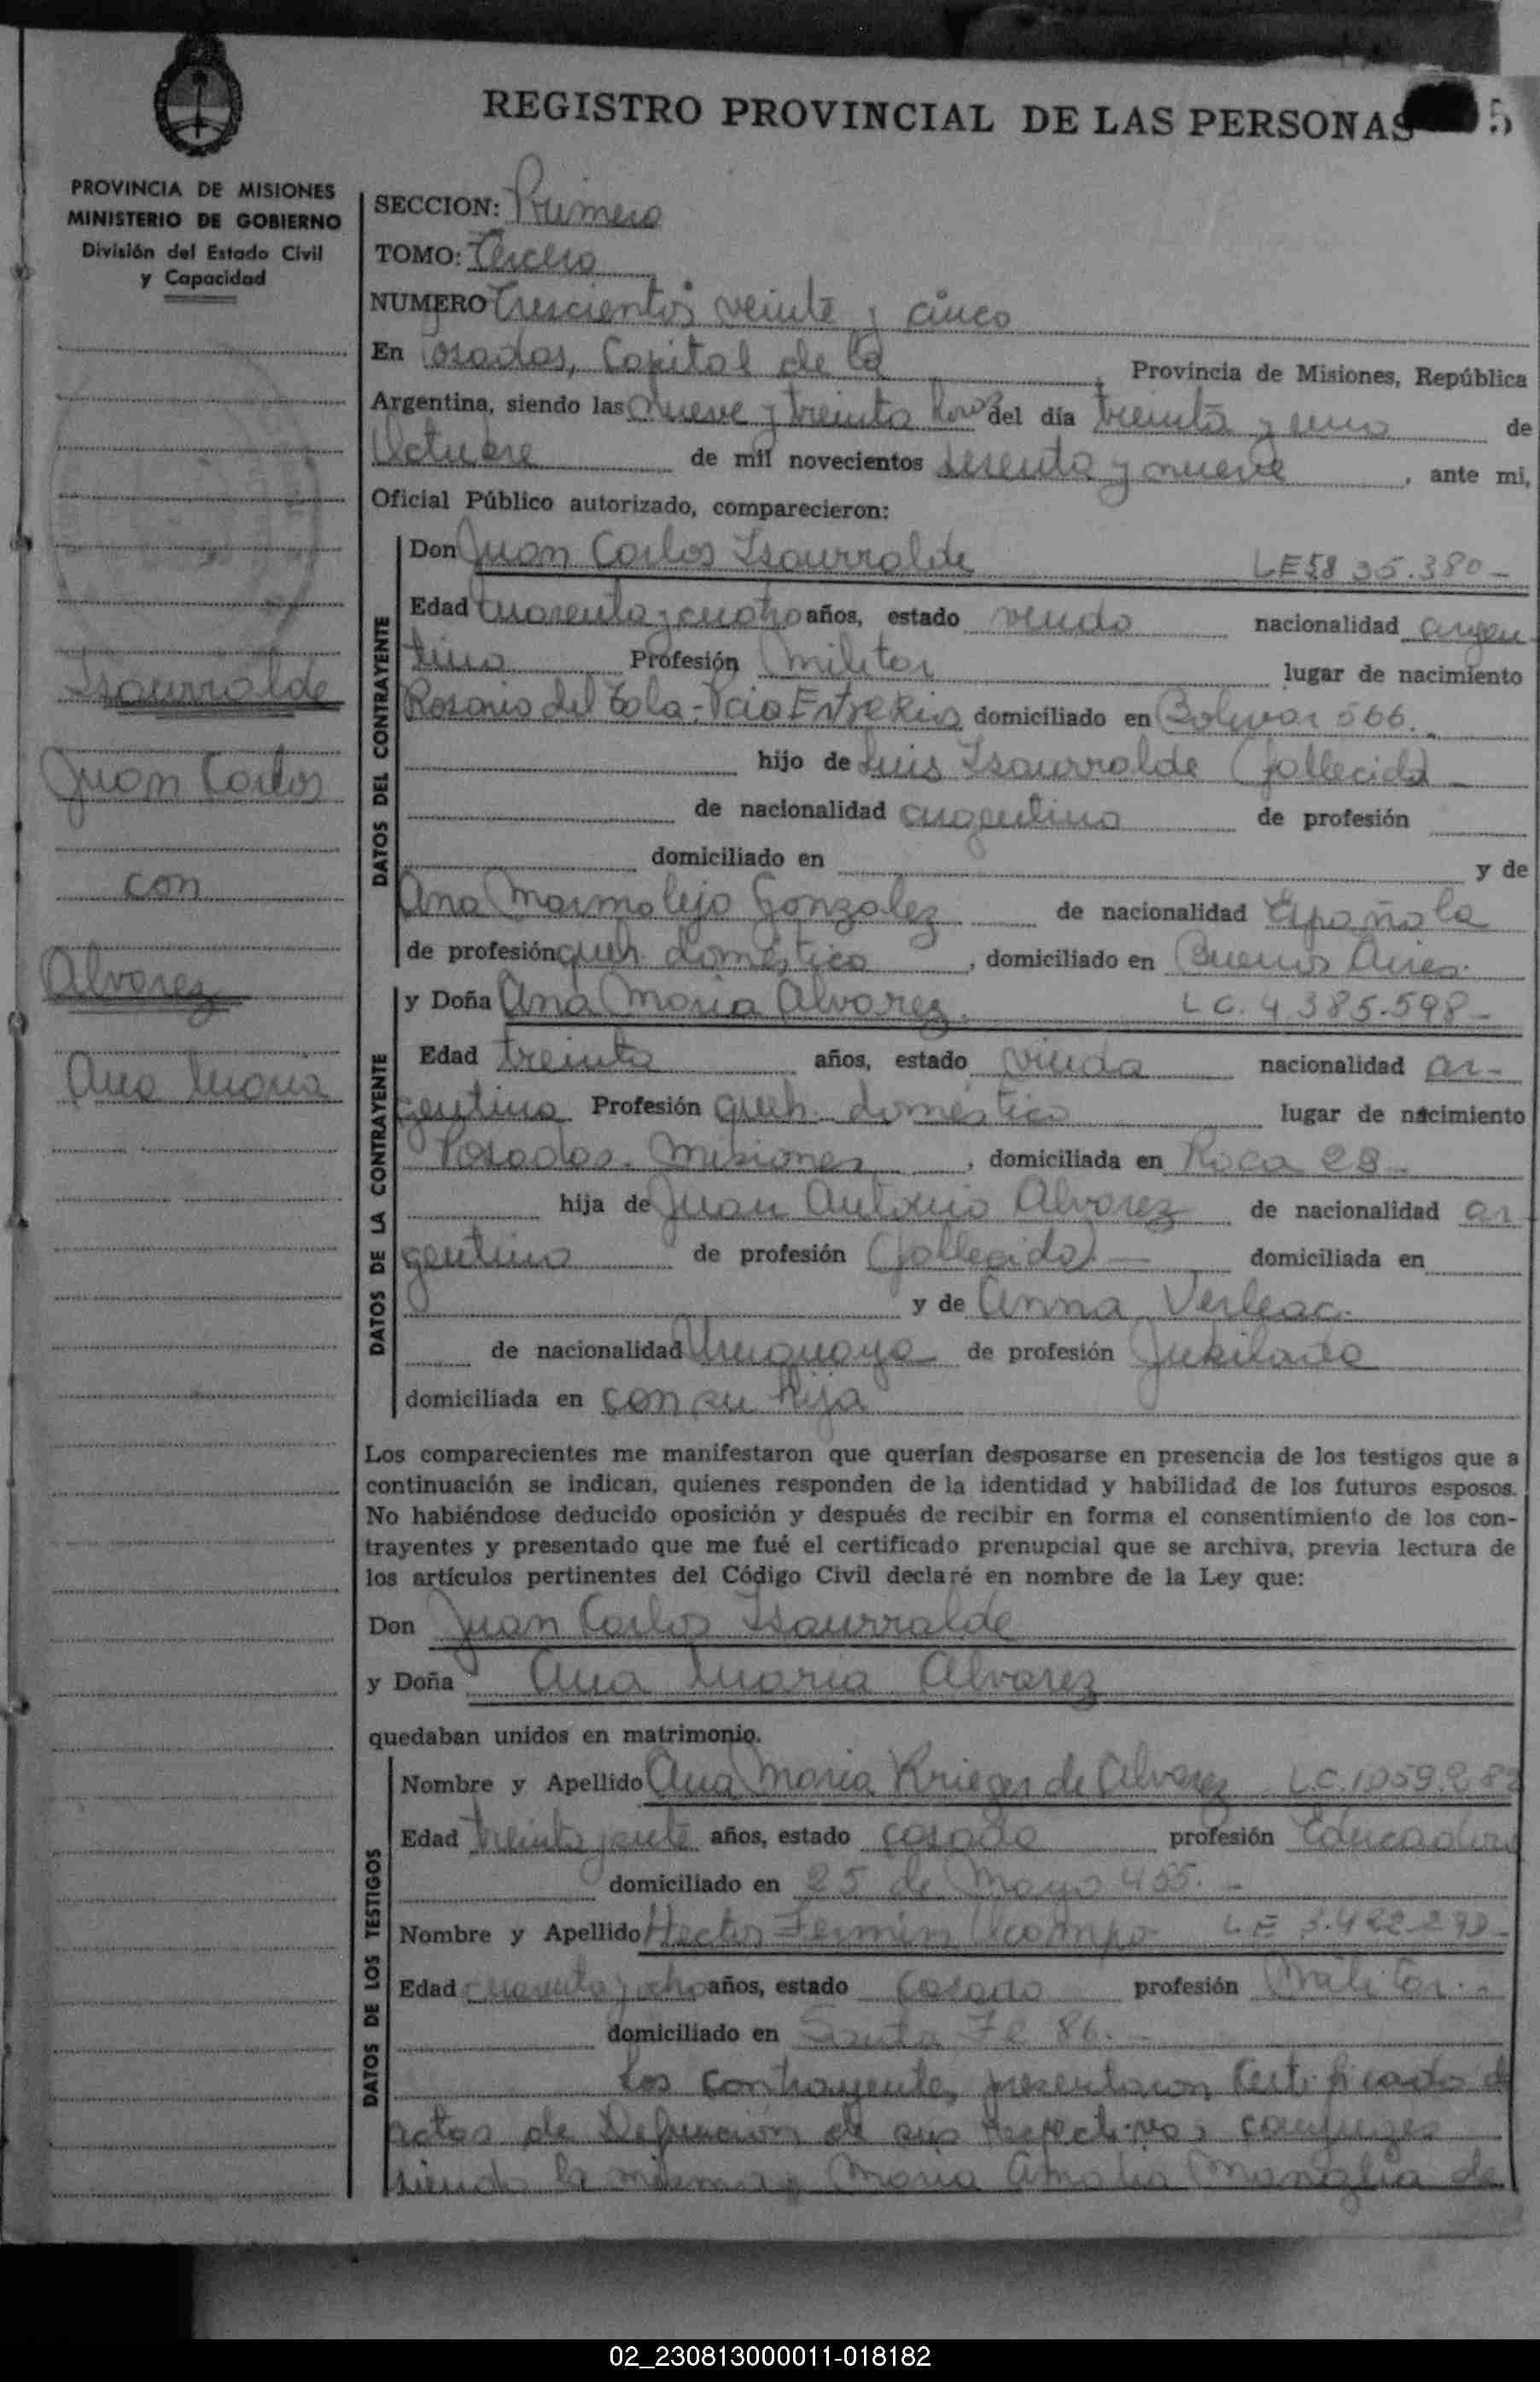 REGISTRO PROVINCIAL DE LAS PERSONAS 5
PROVINCIA DE MISIONES
MINISTERIO DE GOBIERNO
División del Estado Civil
y Capacidad
SECCION: Primera
TOMO: Tercero
NUMERO Trescientos veinte y cinco
En Posadas, Capital de la , Provincia de Misiones, República
Argentina, siendo las nueve y treinta horas del día treinta y uno de
Octubre de mil novecientos sesenta y nueve , ante mi,
Oficial Público autorizado, comparecieron:
Isaurralde
Juan Carlos
con
Alvarez
Ana Maria
DATOS DEL CONTRAYENTE
Don Juan Carlos Isaurralde LE 35.380 -
Edad Cuarenta y cuatro años, estado viudo nacionalidad argen
tino Profesión militar lugar de nacimiento
Rosario del Tala - Pcia Entre Rios domiciliado en Bolivar 566.
hijo de Luis Isaurralde (fallecido)
de nacionalidad argentino de profesión
domiciliado en y de
Ana Marmolejo Gonzalez de nacionalidad Española
de profesión queh. doméstico , domiciliado en Buenos Aires.
DATOS DE LA CONTRAYENTE
y Doña Ana Maria Alvarez. L C. 4.385.598 -
Edad treinta años, estado viuda nacionalidad ar-
gentina Profesión queh. doméstico lugar de nacimiento
Posadas. Misiones , domiciliada en Roca 28.
hija de Juan Antonio Alvarez de nacionalidad ar
gentino de profesión (fallecido) - domiciliada en
y de Anna Verleac.
de nacionalidad Uruguaya de profesión Jubilada
domiciliada en con su hija
Los comparecientes me manifestaron que querían desposarse en presencia de los testigos que a
continuación se indican, quienes responden de la identidad y habilidad de los futuros esposos.
No habiéndose deducido oposición y después de recibir en forma el consentimiento de los con-
trayentes y presentado que me fué el certificado prenupcial que se archiva, previa lectura de
los artículos pertinentes del Código Civil declaré en nombre de la Ley que:
Don Juan Carlos Isaurralde
y Doña Ana Maria Alvarez
quedaban unidos en matrimonio.
DATOS DE LOS TESTIGOS
Nombre y Apellido Ana Maria Krieger de Alvarez L.C. 1.059.282
Edad treinta y siete años, estado casada profesión Educadora
domiciliado en 25 de Mayo 455. -
Nombre y Apellido Hector Fermin Ocampo LE 3.482.290 -
Edad cuarenta y ocho años, estado casado profesión Militar. -
domiciliado en Santa Fe 86. -
Los contrayentes presentaron Certificado de
actas de Defunción de sus respectivos conyuges
siendo la misma Maria Amalia de
02_230813000011-018182